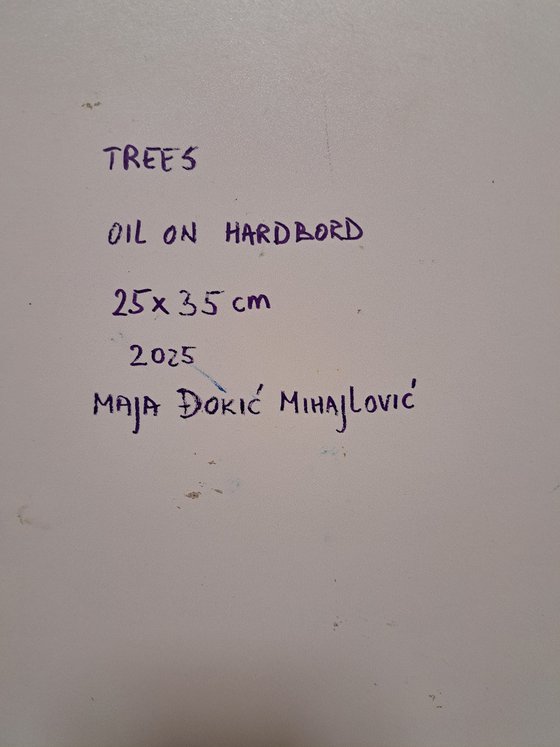 TREES
OIL ON HARDBORD
25x35 cm
2025
MAJA ĐOKIĆ MIHAJLOVIĆ